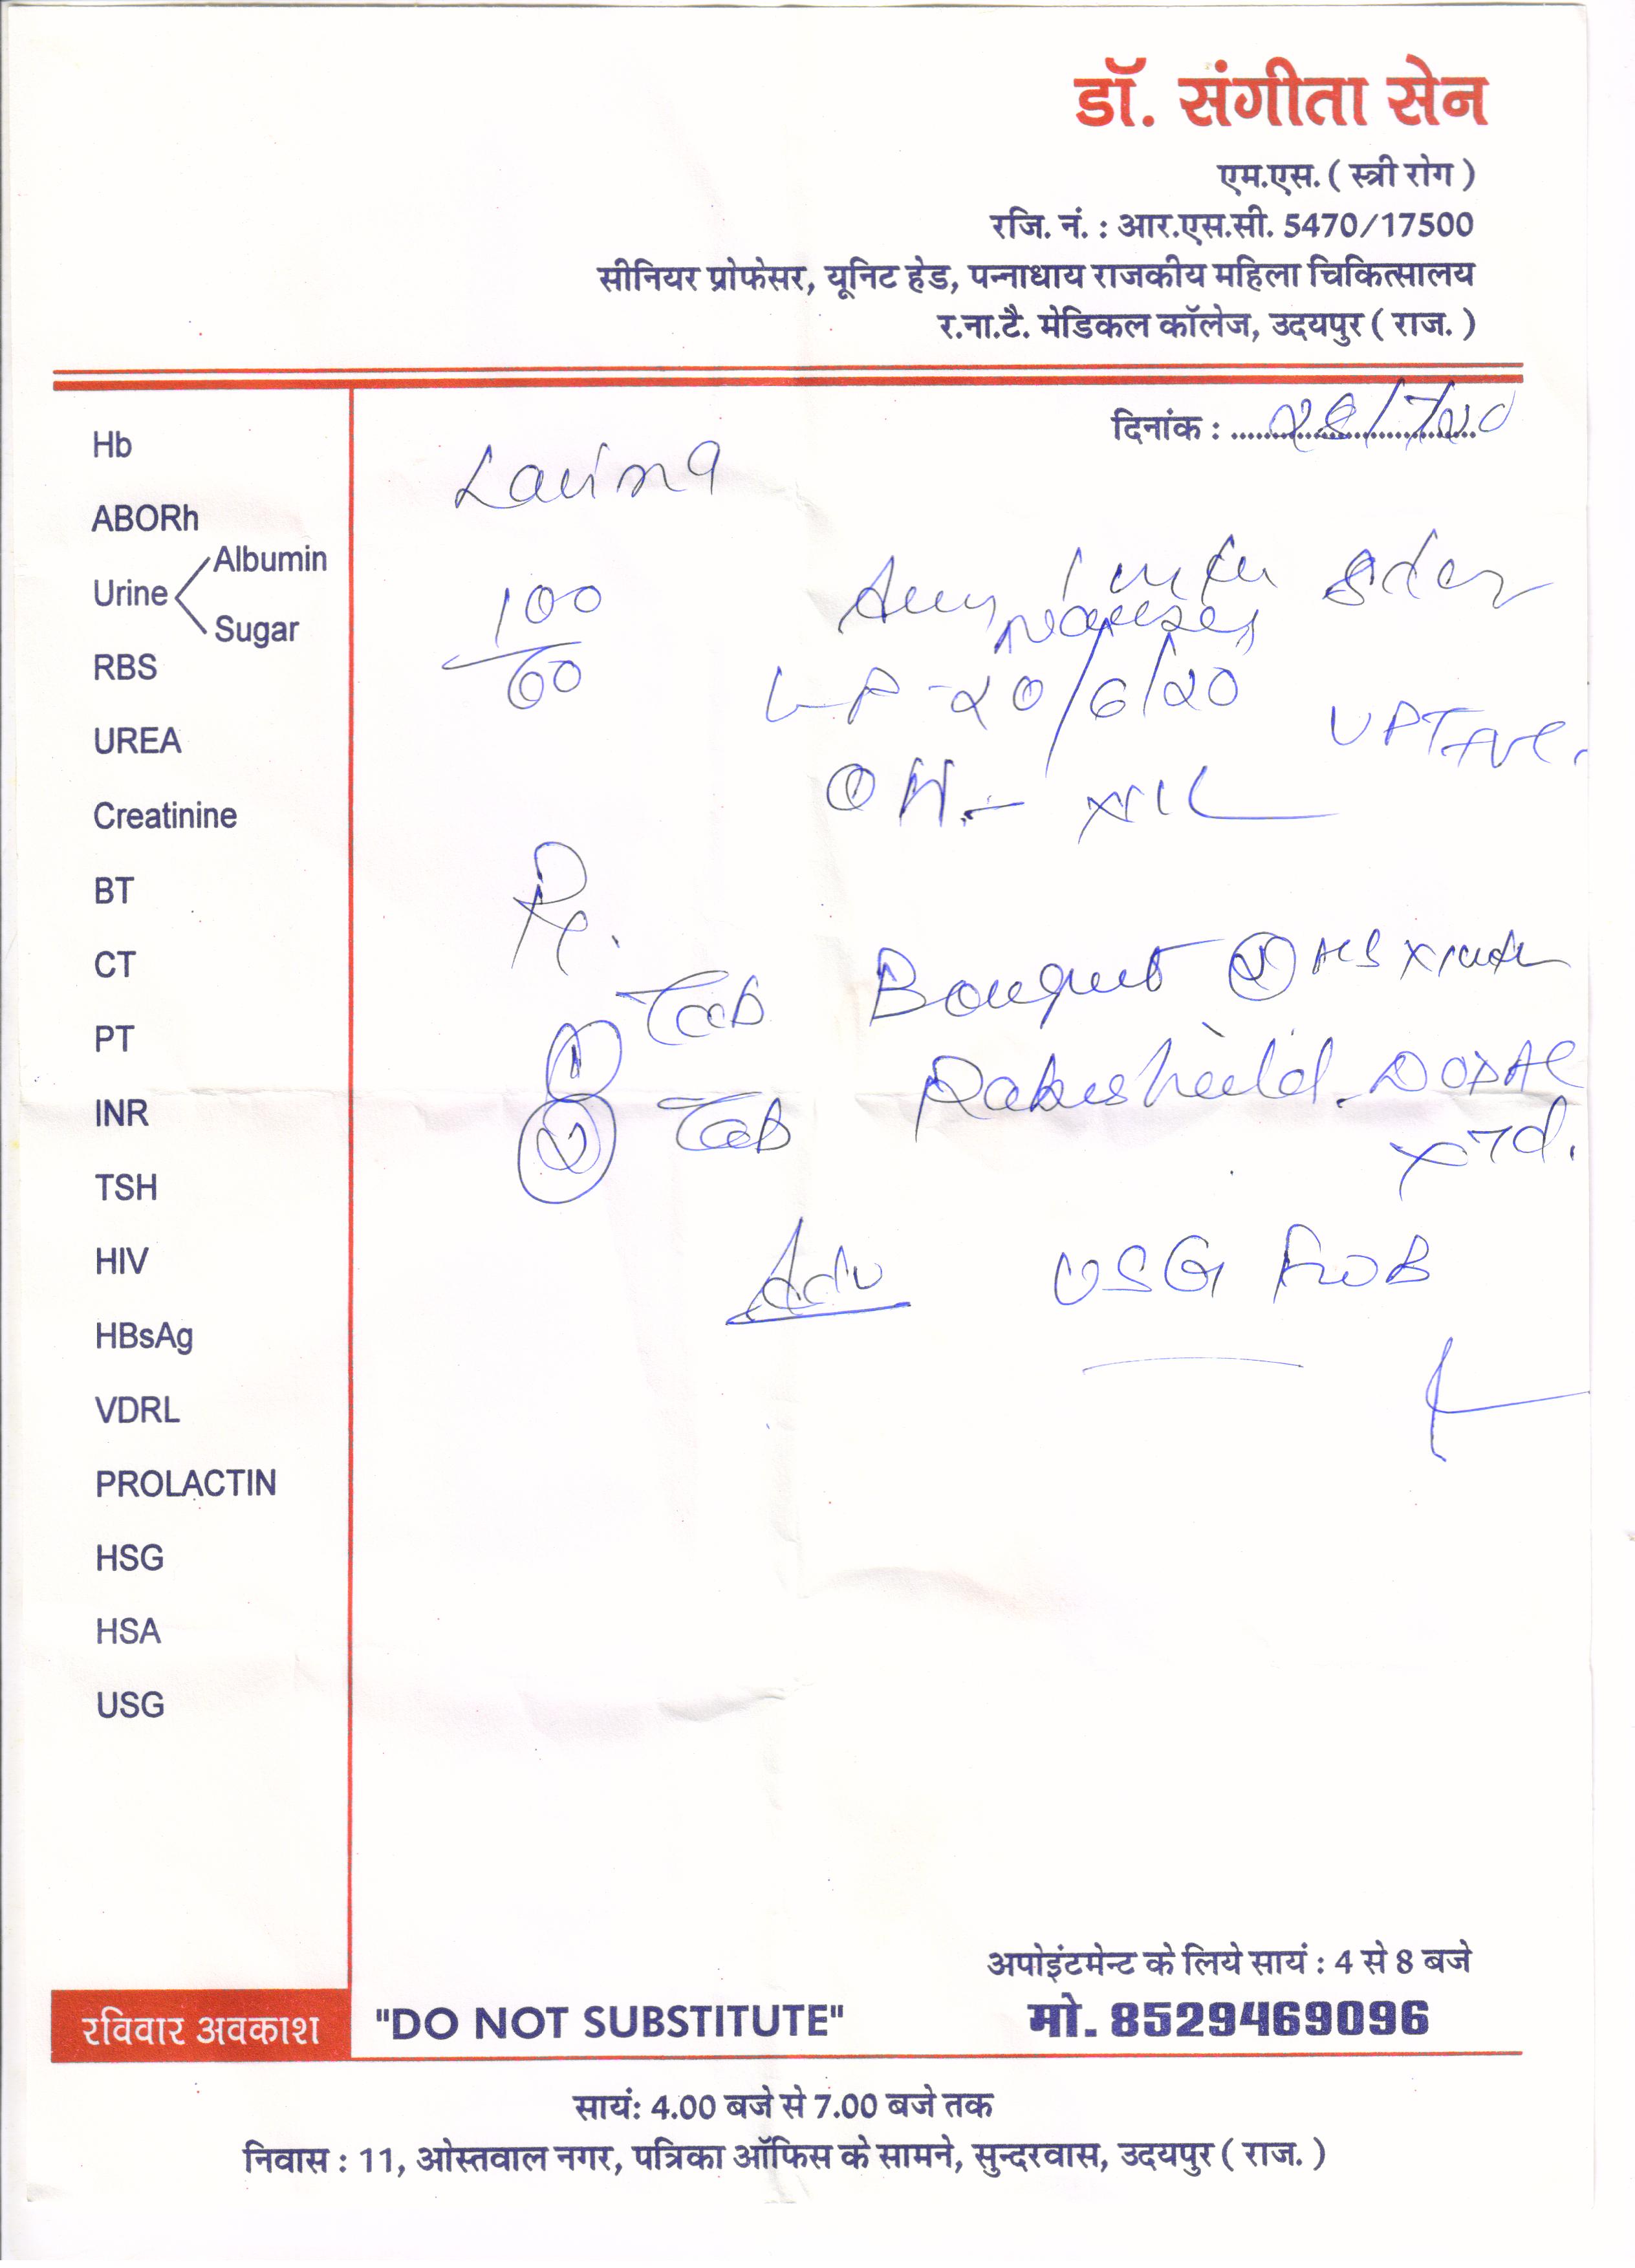 डॉ. संगीता सेन
एम.एस. ( स्त्री रोग )
रजि. नं. : आर.एस.सी. 5470/17500
सीनियर प्रोफेसर, यूनिट हेड, पन्नाधाय राजकीय महिला चिकित्सालय
र.ना.टै. मेडिकल कॉलेज, उदयपुर ( राज. )
दिनांक : 28/7/20
Hb
ABORh
Urine
Albumin
Sugar
RBS
UREA
Creatinine
BT
CT
PT
INR
TSH
HIV
HBsAg
VDRL
PROLACTIN
HSG
HSA
USG
Lavina
100
60
Nausea
LP - 20/6/20
UPT +ve
OH - NIL
Rx
Tab Bouquet HS x
Tab
x 7d.
Adv USG
रविवार अवकाश
"DO NOT SUBSTITUTE"
अपोइंटमेन्ट के लिये सायं : 4 से 8 बजे
मो. 8529469096
सायं: 4.00 बजे से 7.00 बजे तक
निवास : 11, ओस्तवाल नगर, पत्रिका ऑफिस के सामने, सुन्दरवास, उदयपुर ( राज. )